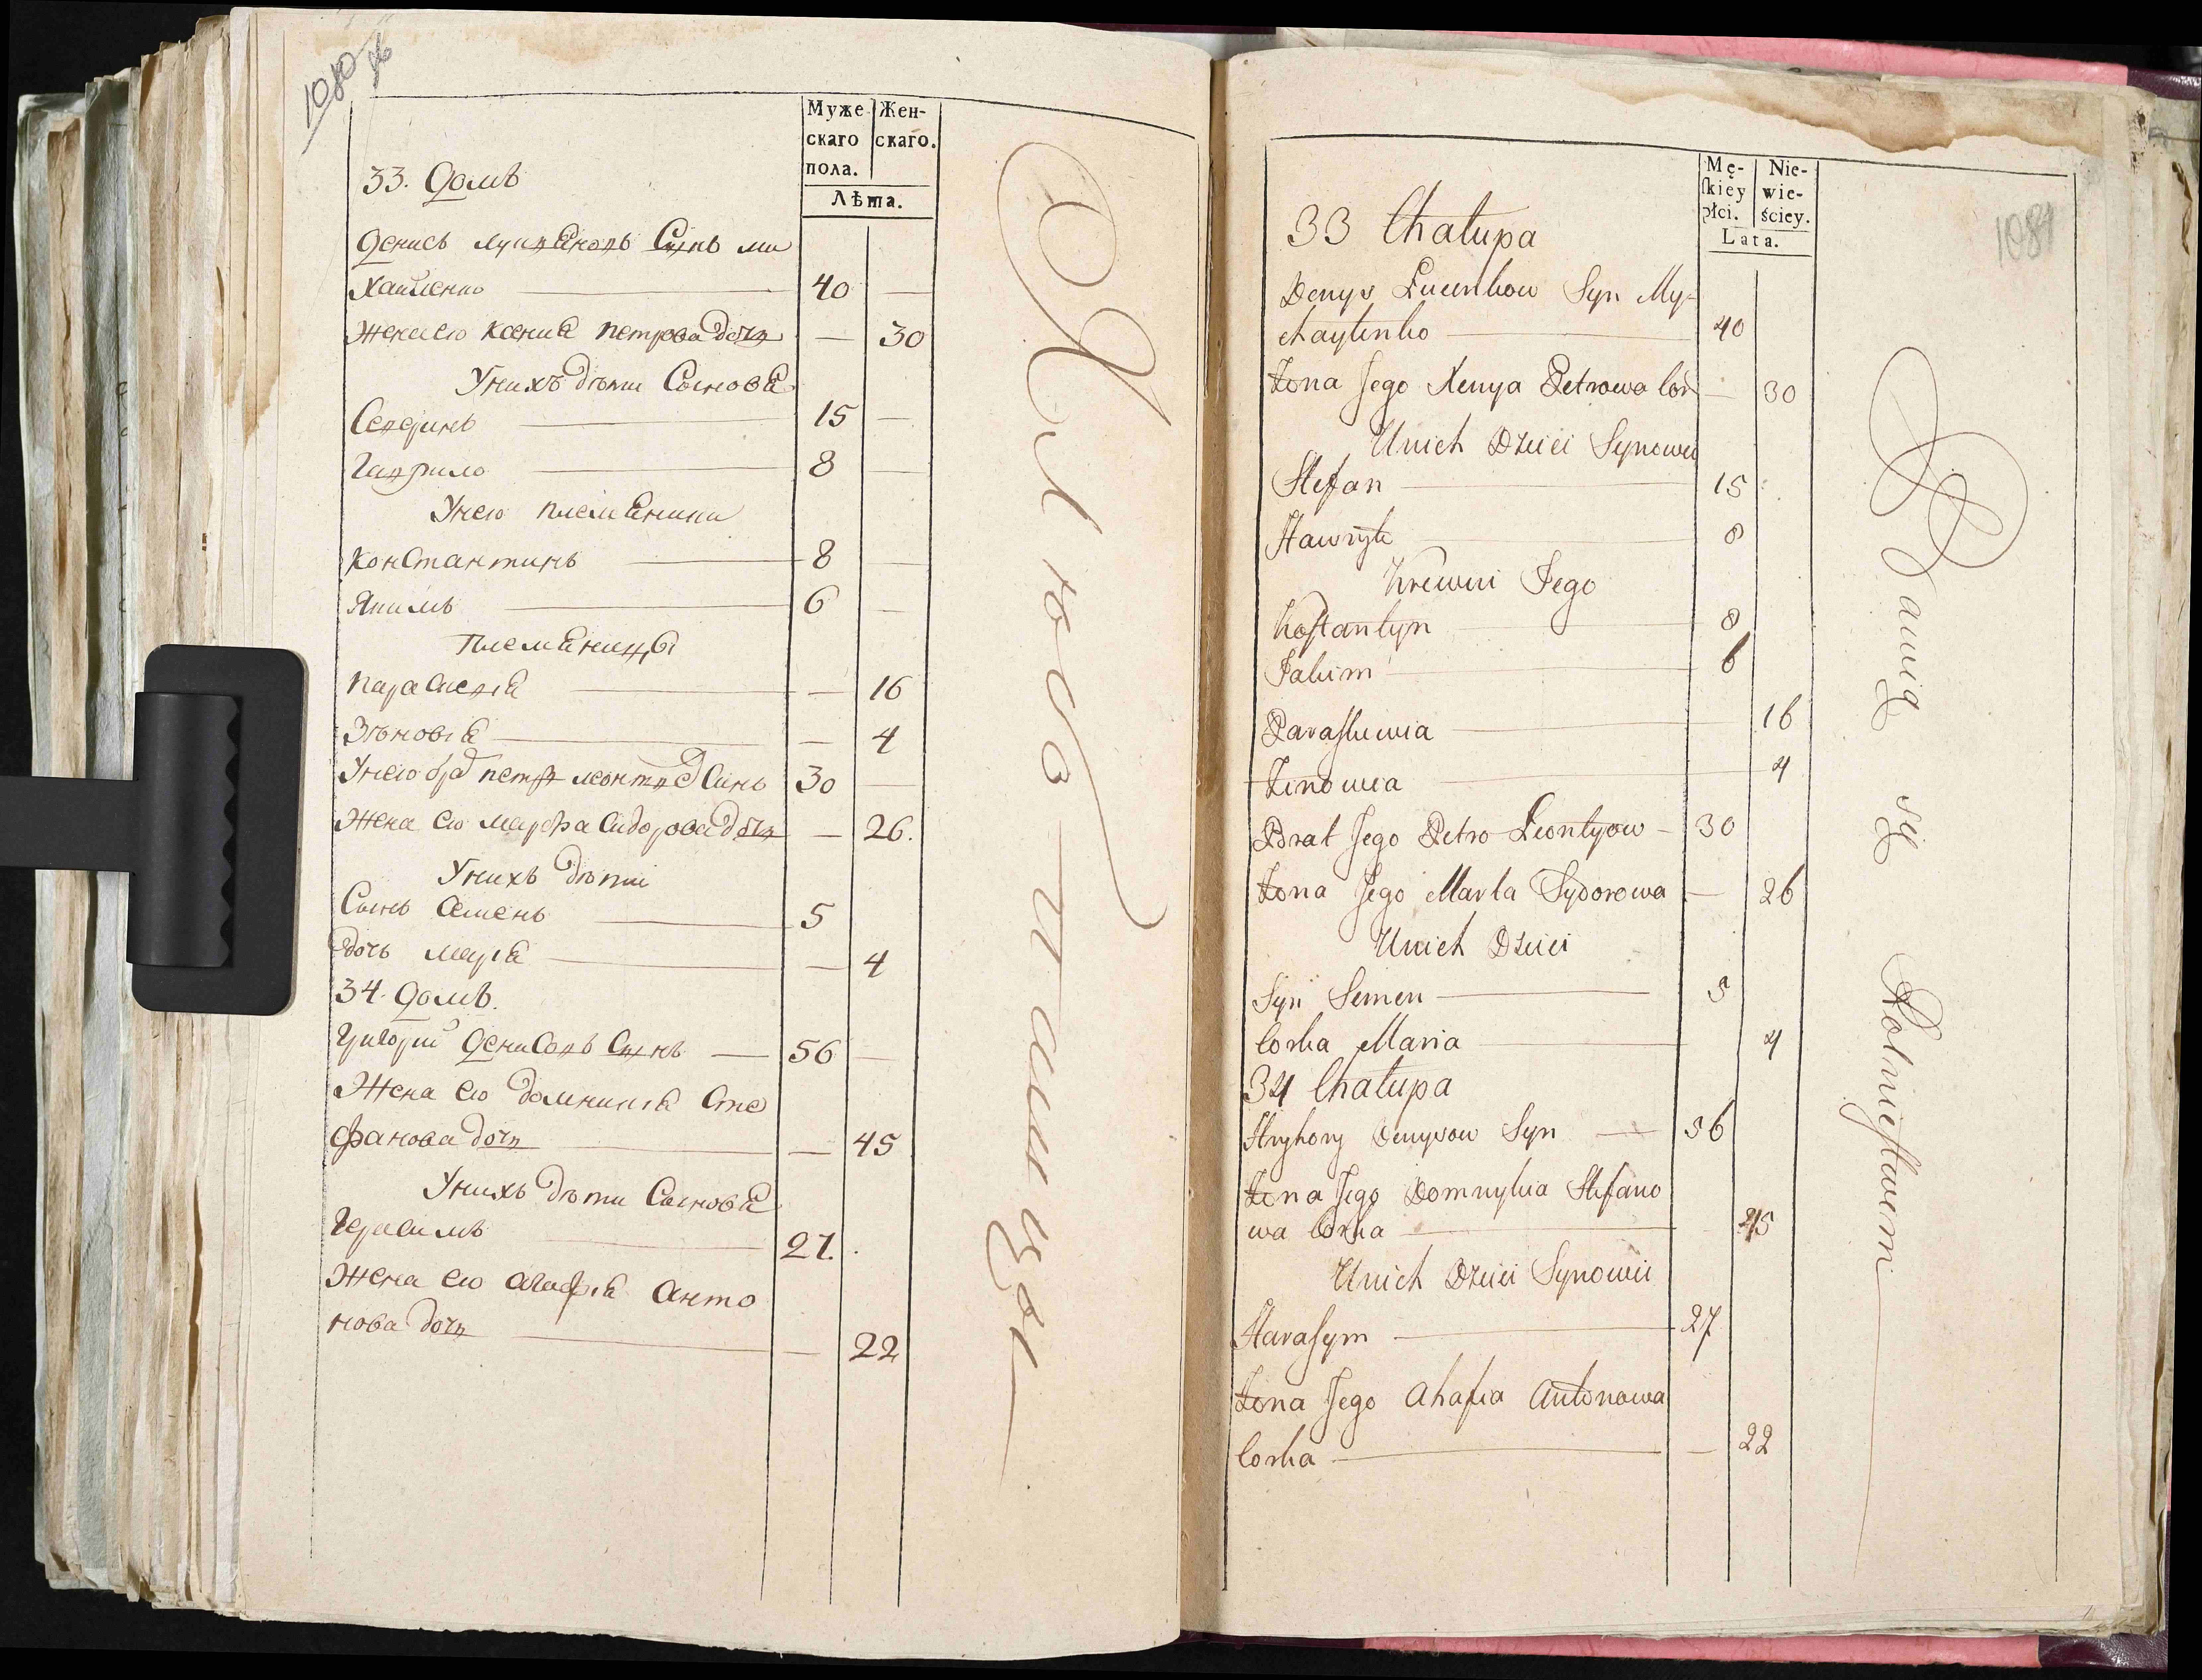 1080
Муже
скаго
пола.
Жен-
скаго.
Лѣта.
33. Домъ
Денисъ Сынъ ми
хайленко 40
Жена его Ксения петрова дочь 30
У них дѣти Сынове
15
Гаврило 8
У него племеники
Константинъ 8
Якимъ 6
Племеницы
Параскевія 16
Зѣновія 4
У него бра петръ леонтьев Синъ 30
Жена его марфа сидорова дочь 26.
У нихъ дѣти
Сынъ Семенъ 5
дочь марія 4
34. Домъ.
Григорий Денисовъ Сынъ 56
Жена его домникія Сте
фанова дочь 45
У нихъ дѣти Сынове
Герасимъ 27.
Жена его агафія анто
нова дочь 22
1081
Mę-
skiey
płci.
Nie-
wie-
ściey.
Lata.
33 Chałupa
Denys Syn My-
chaylenko 40
Żona Jego Xenya Petrowa cor 30
Unich Dzieci Synowie
Stefan 15
Hawryło 8
Krewni Jego
Kostantyn 8
Jakim 6
Paraskiewia 16
Zinowia 4
Brat Jego Petro Leontyow 30
Żona Jego Marta Sydorowa 26
Unich Dzieci
Syn Semen 5
Corka Maria 4
34 Chałupa
Hryhory Denysow Syn 56
Żona Jego Domnykia Stefano
wa Corka 45
Unich Dzieci Synowie
Harasym 27
Żona Jego Ahafia Antonowa
Corka 22
Bawią się Rolnictwem